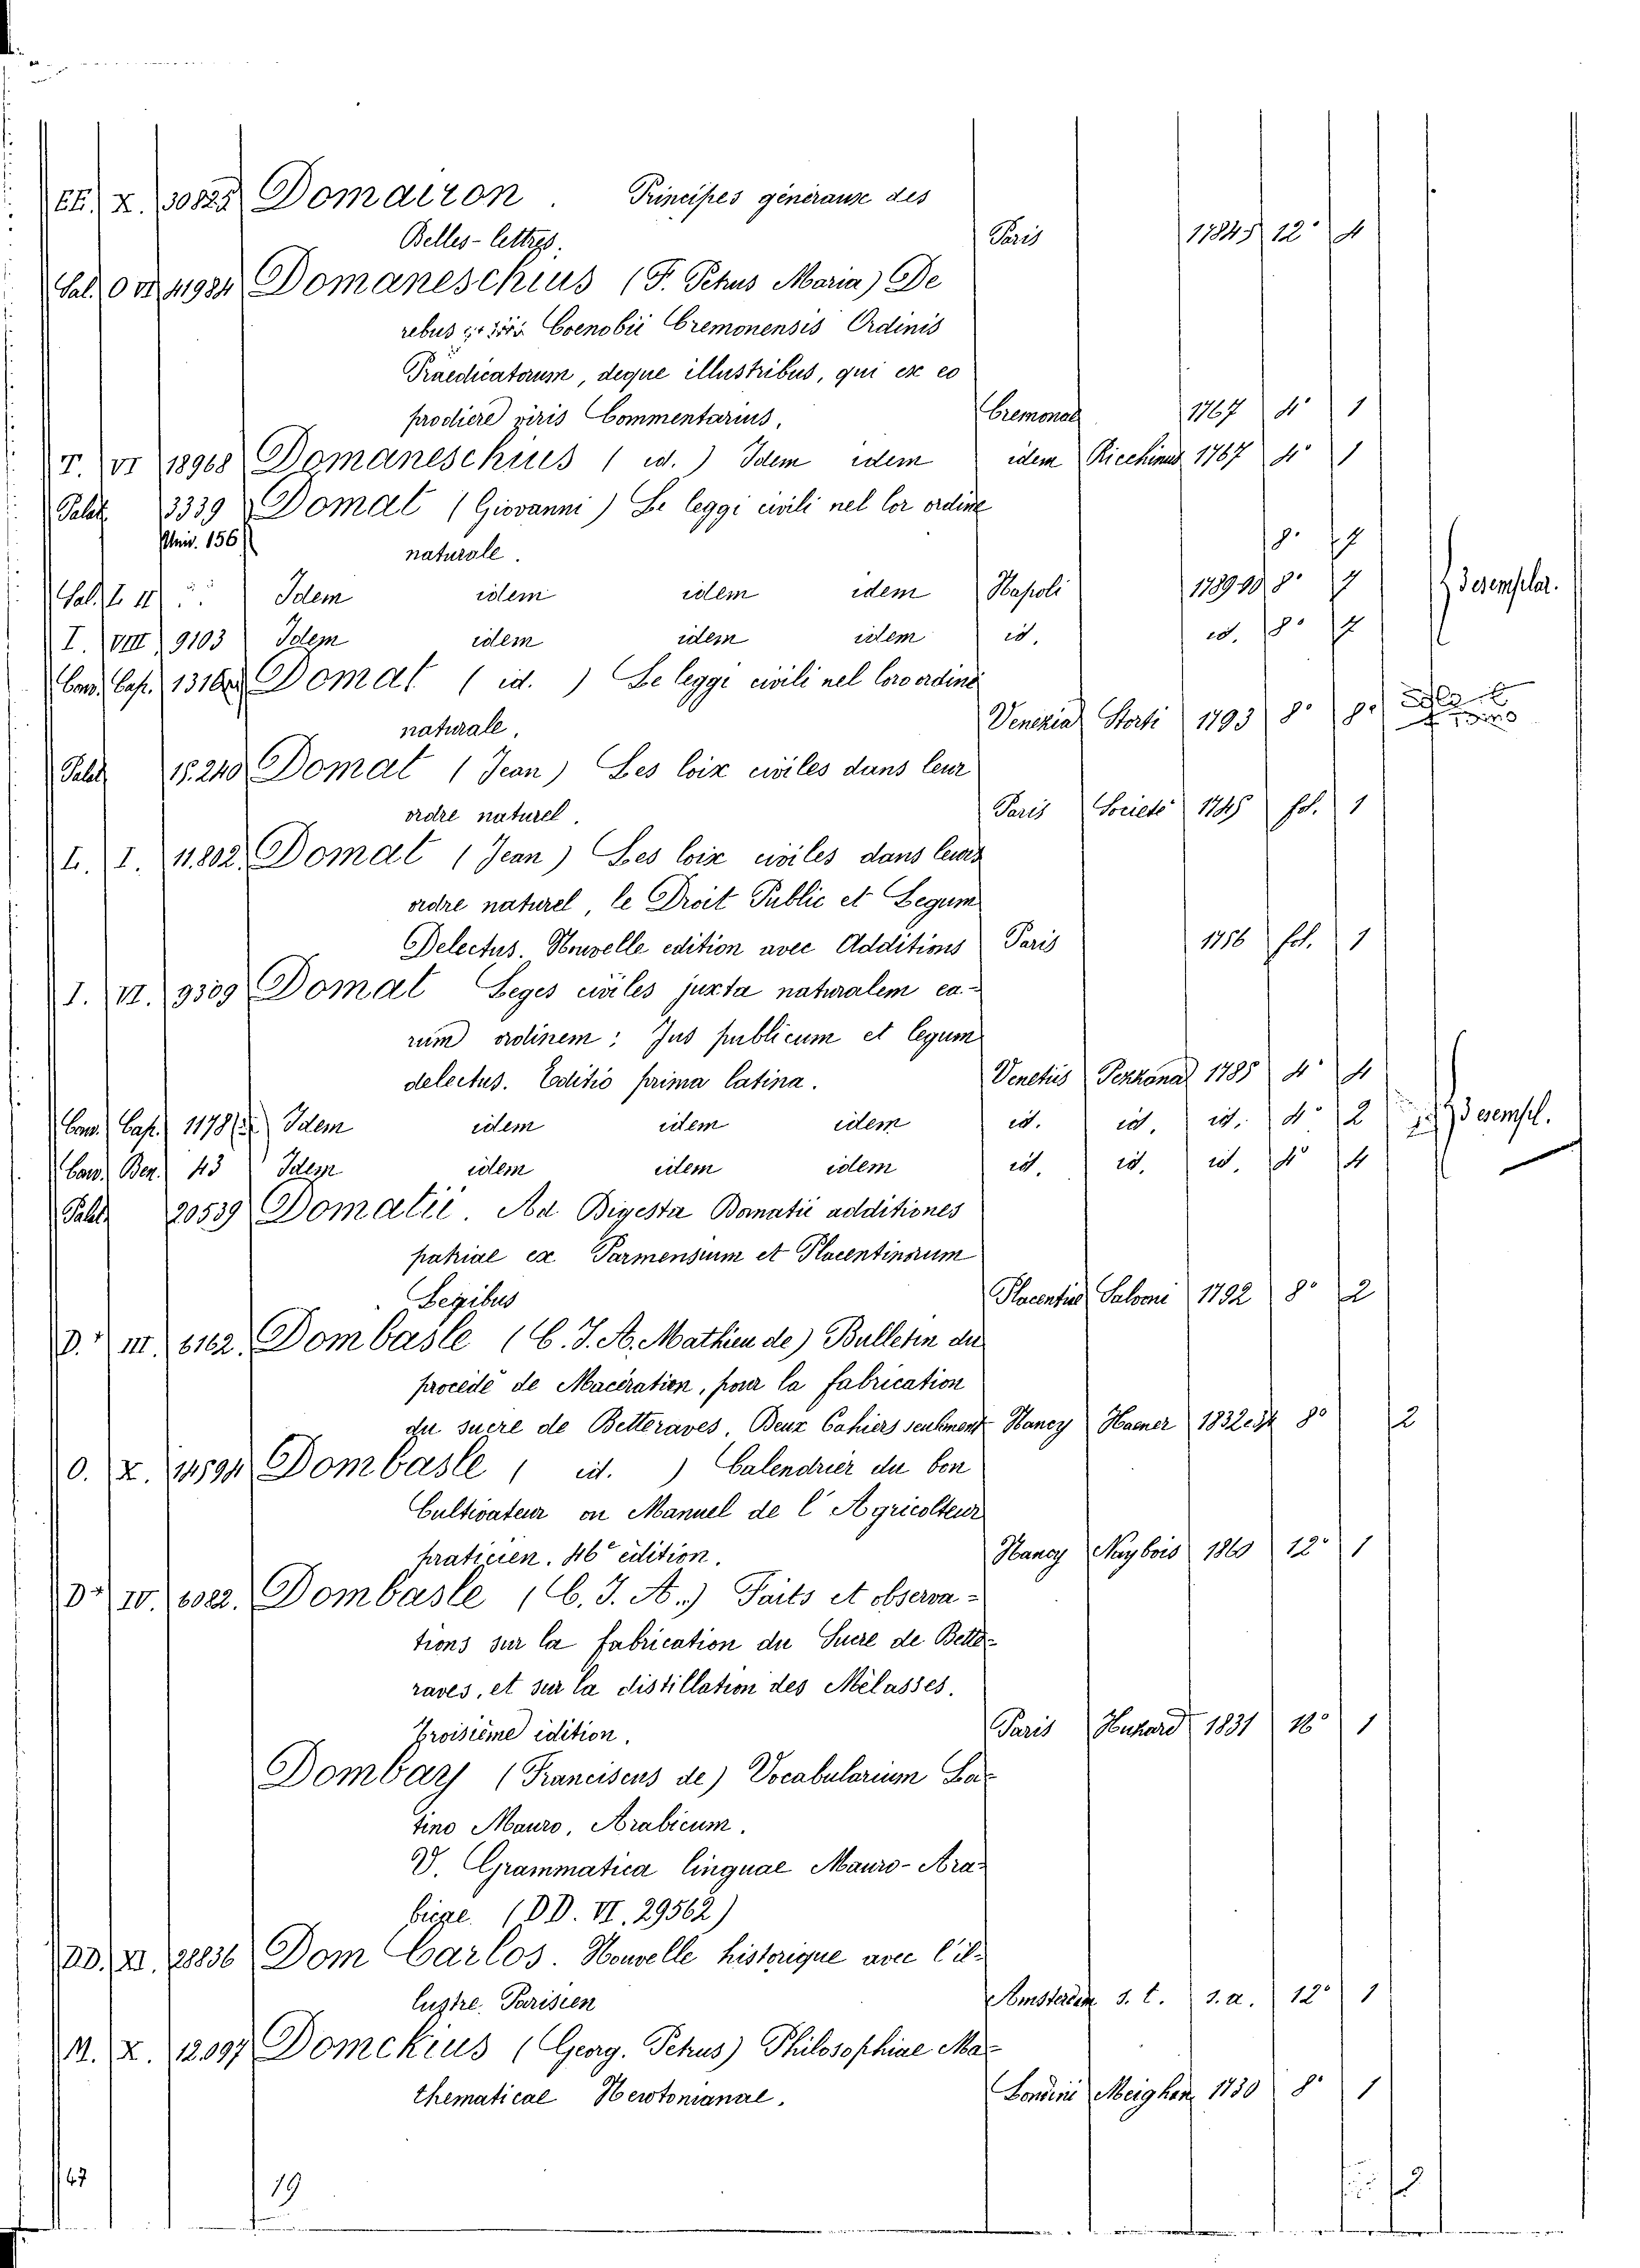 EE. X. 30825 Domairon. Principes généraux des
Belles-lettres. Paris 12° 4
Sal. O VI 41984 Domaneschius (F. Petrus Maria) De
rebus Coenobii Cremonensis Ordinis
Praedicatorum, deque illustribus, qui ex eo
prodiere viris Commentarius. Cremonae 1767 4° 1
T. VI 18968 Domaneschius (id.) Idem idem idem Ricchinus 1767 4° 1
Palat. 3339 Domat (Giovanni) Le leggi civili nel lor ordine
Univ. 156 naturale. 8°
Sal. L II Idem idem idem idem Napoli 8° 7 3 esemplar.
I. VIII 9103 Idem idem idem idem id. id. 8° 7
Cav. Cap. Domat (id.) Le leggi civili nel loro ordine
naturale. Venezia Storti 1793 8° 8
Palat. 15.240 Domat (Jean) Les loix civiles dans leur
ordre naturel. Paris Societé 1745 fol. 1
L. I. 11.802. Domat (Jean) Les loix civiles dans leurs
ordre naturel, le Droit Public et Legum
Delectus. Nouvelle edition avec Additions Paris 1756 fol. 1
I. VI. 9309 Domat Leges civiles juxta naturalem ea-
rum ordinem: Jus publicum et legum
delectus. Editio prima latina. Venetiis Pezzana 1785 4° 4
Cav. Cap. 1178 Idem idem idem idem id. id. id. 4° 2 3 esempl.
Cav. Ben. 43 Idem idem idem idem id. id. id. 4° 4
Palat. 20539 Domatii. Ad Digesta Donatii additiones
patriae ex Parmensium et Placentinorum
Legibus Placentiae Salvoni 1792 8° 2
D.† III. 6162. Dombasle (C. J. A. Mathieu de) Bulletin du
procédé de Macération, pour la fabrication
du sucre de Betteraves. Deux Cahiers seulement Nancy Haener 1832 8° 2
O. X. 14594 Dombasle (id.) Calendrier du bon
Cultivateur ou Manuel de l'Agricolteur
praticien. Nancy 1860 12° 1
D† IV. 6022. Dombasle (C. J. A.) Faits et observa-
tions sur la fabrication du Sucre de Bette-
raves, et sur la distillation des Mélasses.
Troisième édition. Paris Huzard 1831 1
Dombay (Franciscus de) Vocabularium La-
tino Mauro, Arabicum.
V. Grammatica linguae Mauro-Ara-
bicae. (DD. VI. 29562)
DD. XI. 28836 Dom Carlos. Nouvelle historique avec l'il-
lustre Parisien Amsterdam s. t. s. a. 12° 1
M. X. 12097 Domckius (Georg. Petrus) Philosophiae Ma-
thematicae Newtonianae. Londini Meighan 1730 8° 1
19